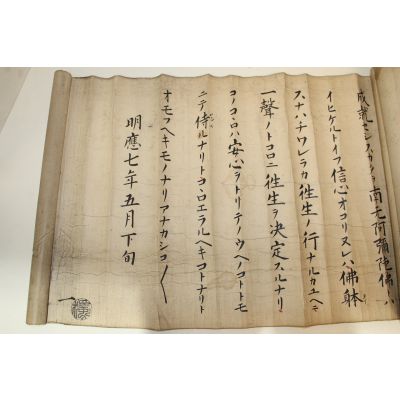 成就セシスガタヲ南无阿彌陀佛トハ
イヒケルトイフ信心オコリヌレハ佛躰
スナハチワレラカ徃生ノ行ナルカユヘニ
一聲ノトコロニ徃生ヲ決定スルナリ
コノコヽロハ安心ヲトリテノウヘノコトトモ
ニテ侍ルナリトコヽロエラルヘキコトナリト
オモフヘキモノナリアナカシコ〱
明應七年五月下旬